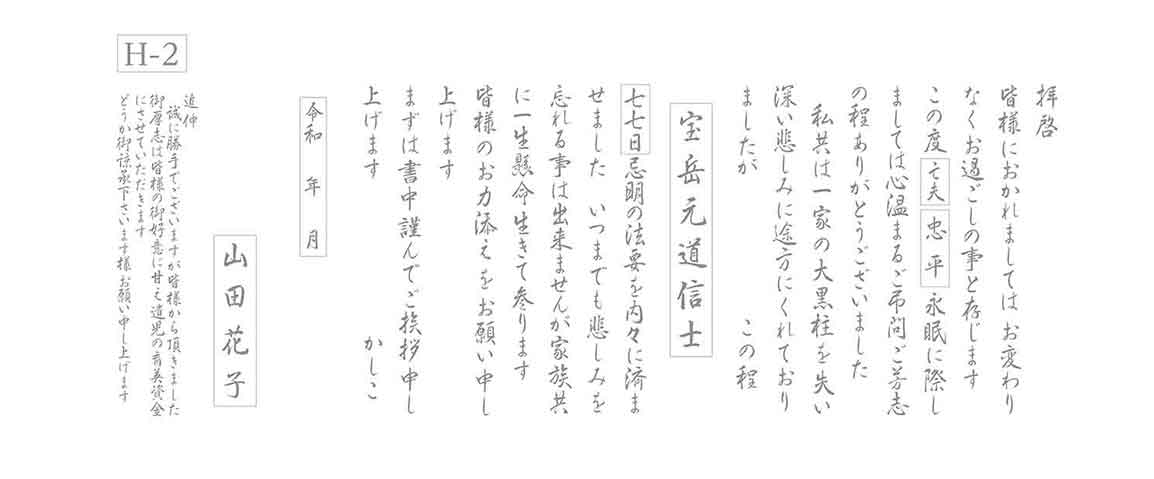 H-2
拝啓
皆様におかれましては お変わり
なくお過ごしの事と存じます
この度 亡夫 忠平 永眠に際し
ましては心温まるご弔問ご芳志
の程ありがとうございました
私共は一家の大黒柱を失い
深い悲しみに途方にくれており
ましたが この程
宝岳元道信士
七七日忌明の法要を内々に済ま
せました いつまでも悲しみを
忘れる事は出来ませんが家族共
に一生懸命生きて参ります
皆様のお力添えをお願い申し
上げます
まずは書中謹んでご挨拶申し
上げます かしこ
令和 年 月
山田花子
追伸
誠に勝手でございますが皆様から頂きました
御厚志は皆様の御好意に甘え遺児の育英資金
にさせていただきます
どうか御諒承下さいます様お願い申し上げます